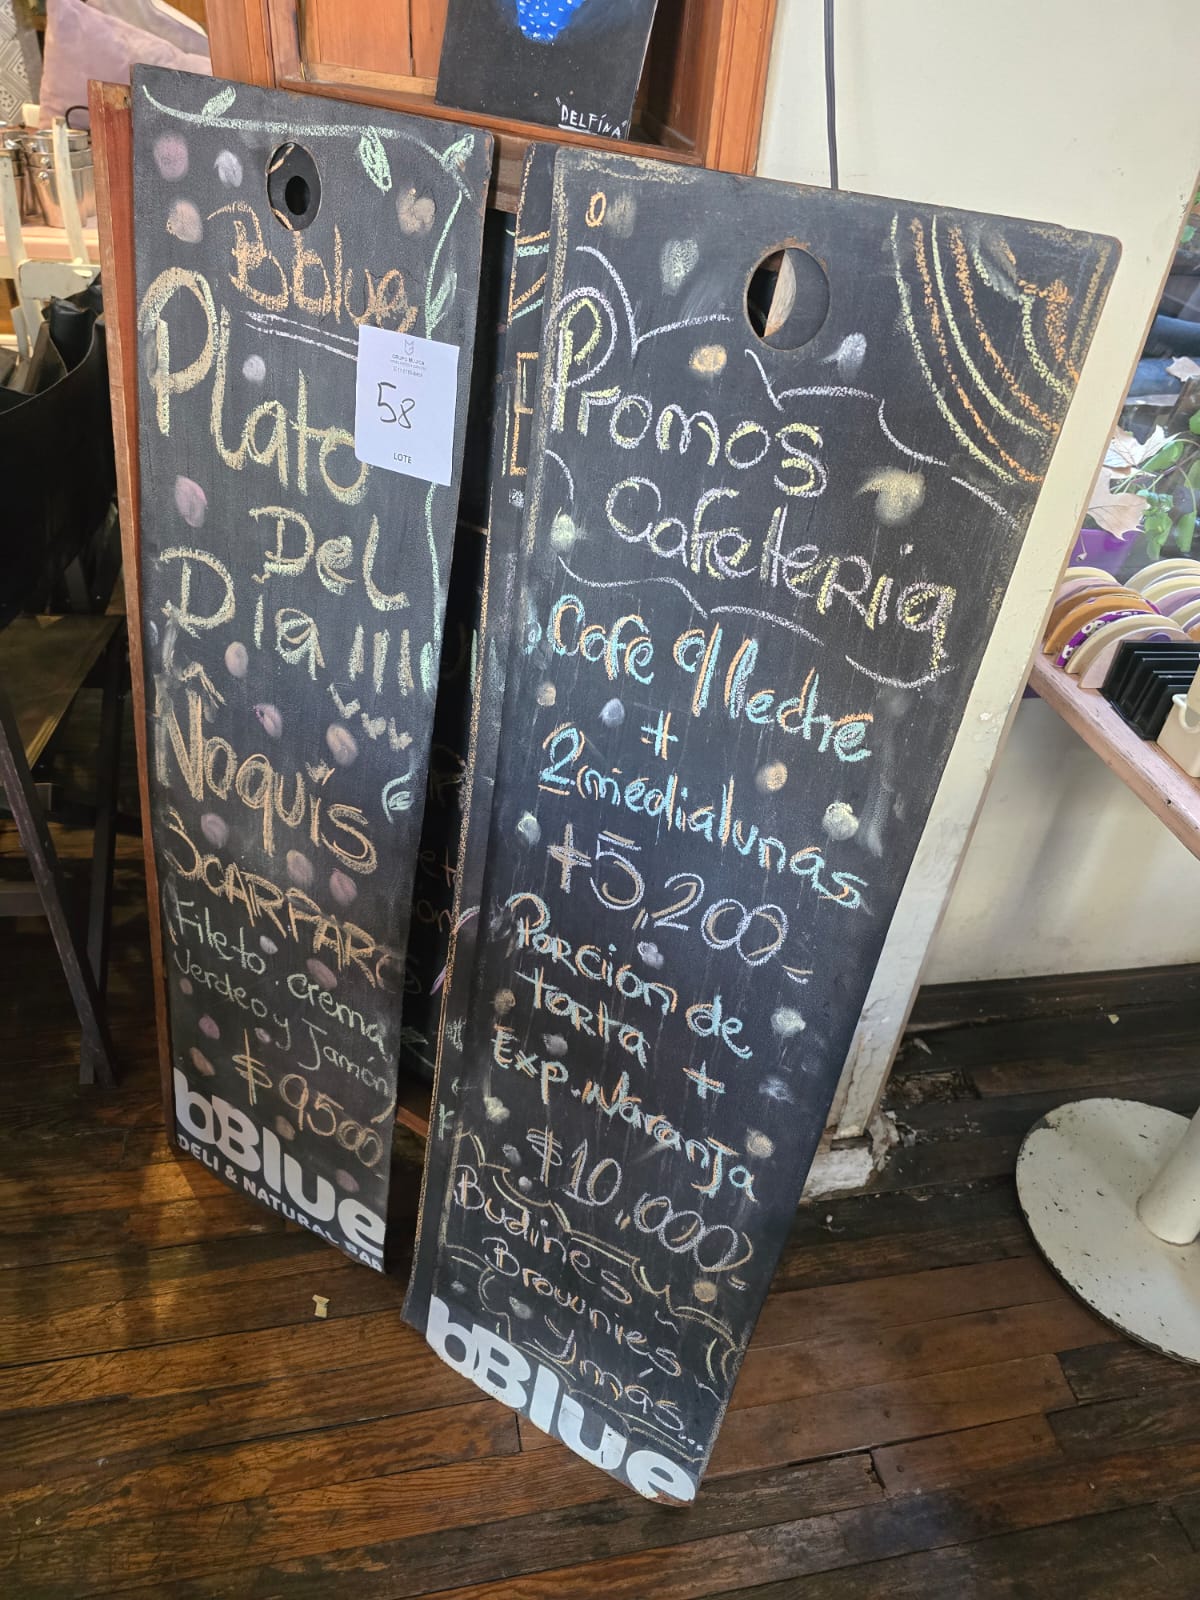 "DELFINA"
Bblue
Plato
Del
Día !!!!
Ñoquis
SCARPARO
Fileto, crema
Verdeo y Jamón
$9500
bBlue
DELI & NATURAL BAR
GRUPO MUJICA
58
LOTE
Promos
Cafeteria
Cafe c/ leche
+
2 medialunas
$5,200-
Porcion de
torta +
Exp. Naranja
$10,000-
Budines
Brownies
y más...
bBlue